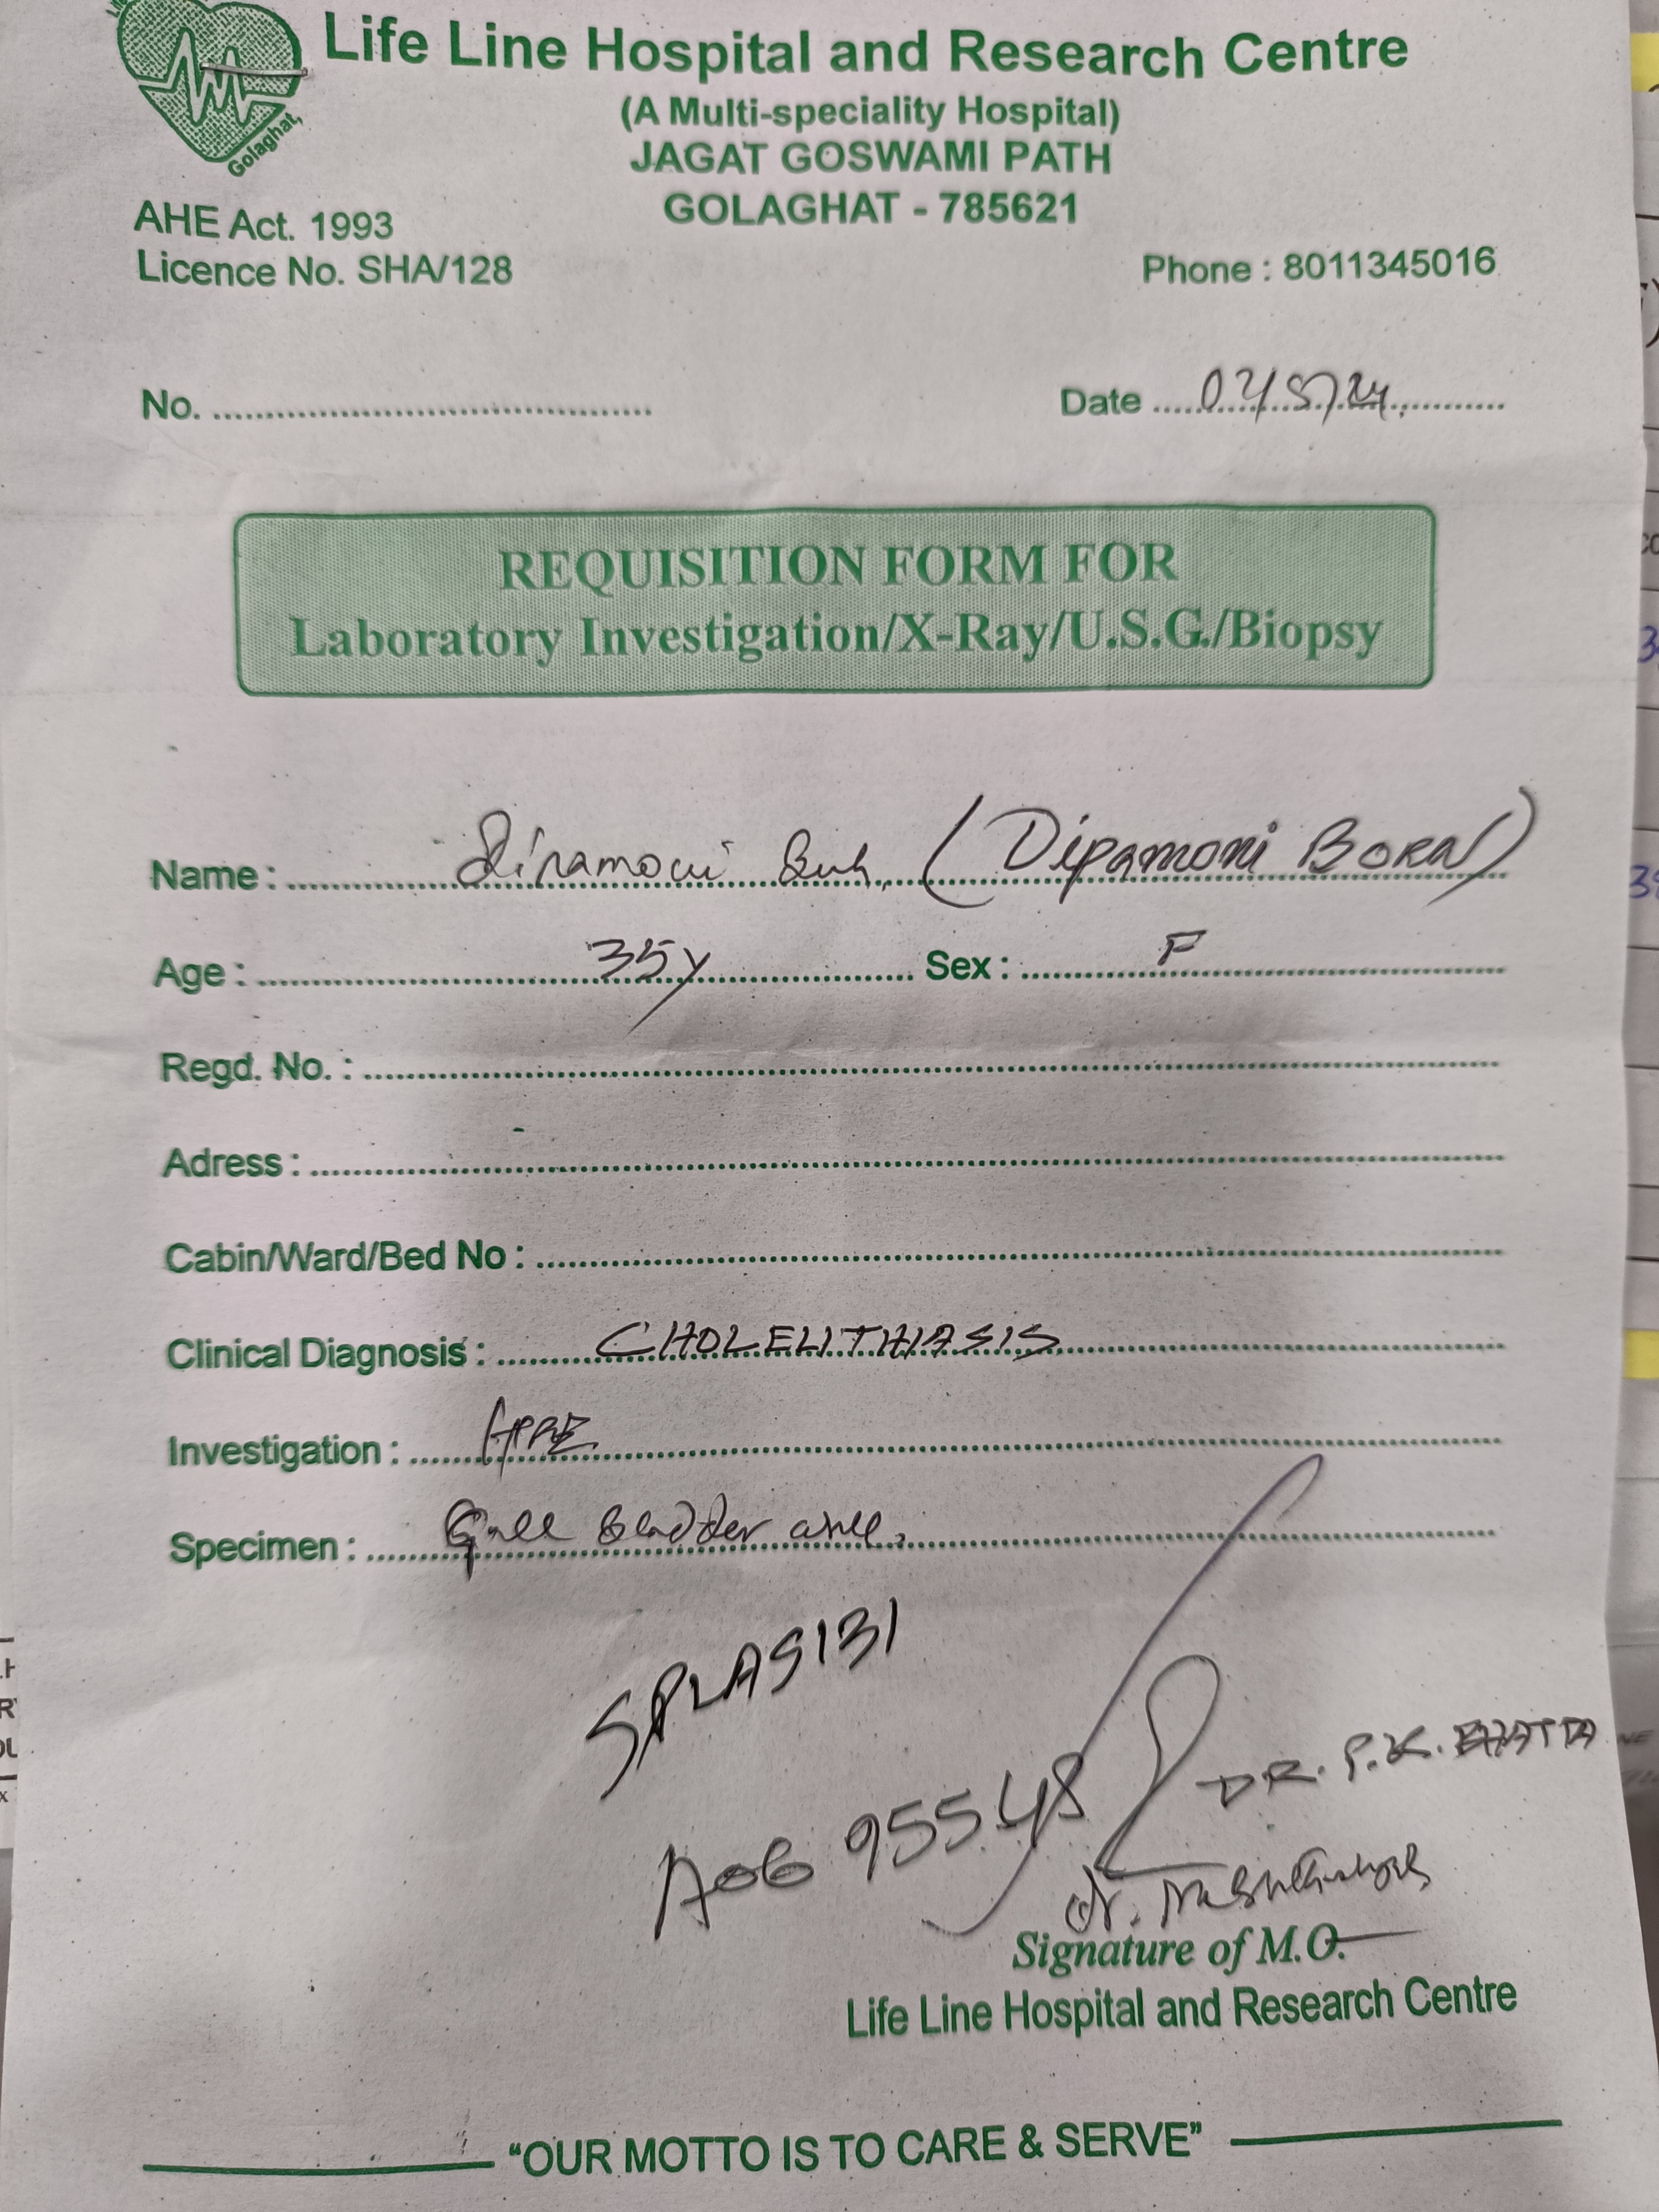 Life Line Hospital and Research Centre
(A Multi-speciality Hospital)
JAGAT GOSWAMI PATH
GOLAGHAT - 785621
Golaghat,
AHE Act. 1993
Licence No. SHA/128
Phone : 8011345016
No.
Date
REQUISITION FORM FOR
Laboratory Investigation/X-Ray/U.S.G./Biopsy
Name : (Dipamoni BORA)
Age : 35y Sex : F
Regd. No. :
Adress :
Cabin/Ward/Bed No :
Clinical Diagnosis : CHOLELITHIASIS
Investigation : HPE
Specimen : Gall bladder
A06 95548
DR. P.K. BHATTA
Signature of M.O.
Life Line Hospital and Research Centre
“OUR MOTTO IS TO CARE & SERVE”